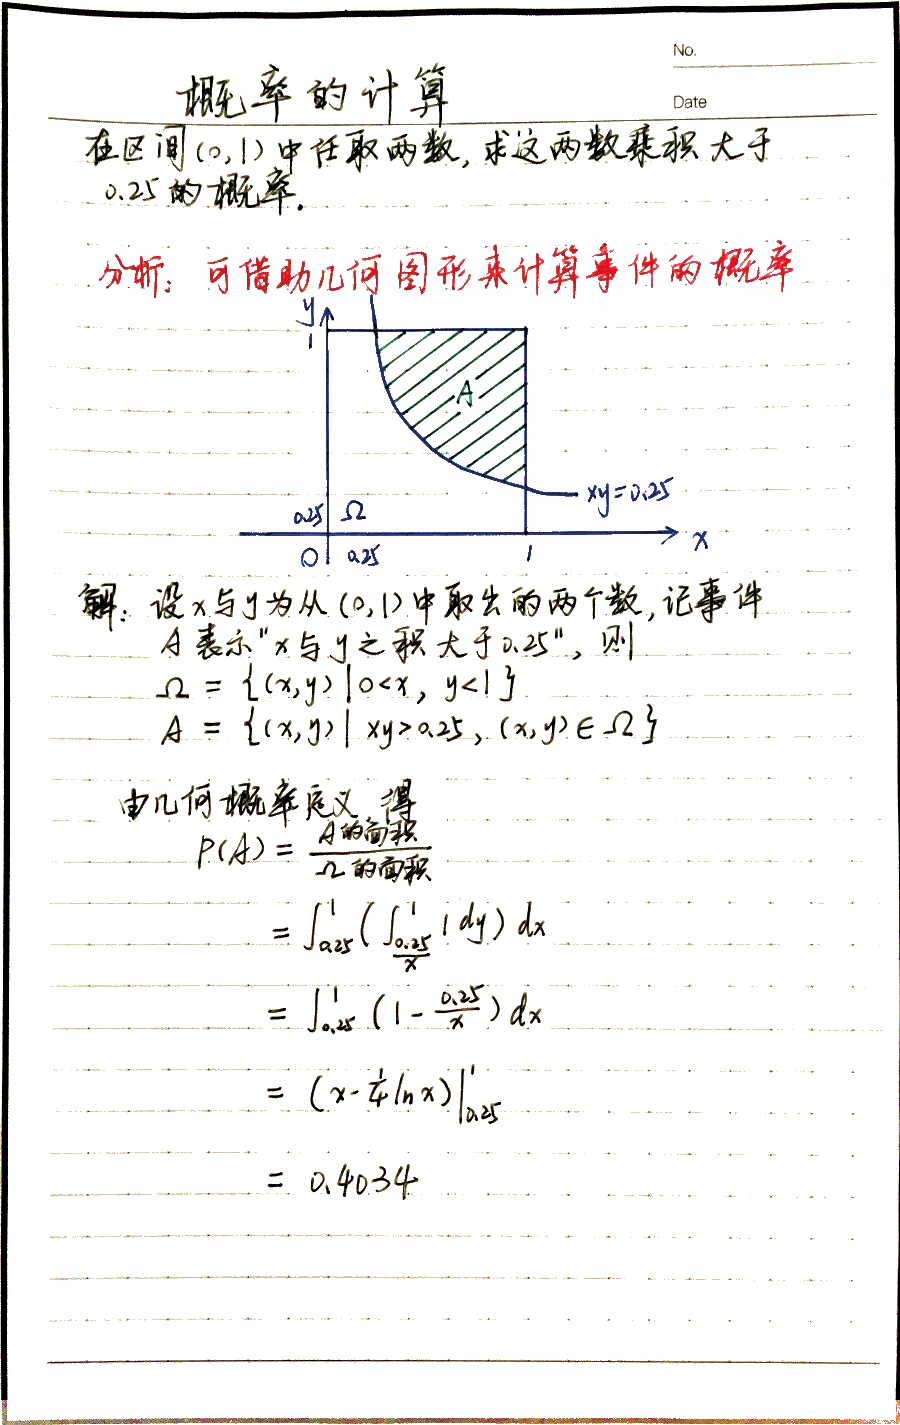 No.
概率的计算
Date
在区间(0,1)中任取两数,求这两数乘积大于
0.25的概率.
分析:可借助几何图形来计算事件的概率
y
1
A
xy=0.25
0.25 Ω
O 0.25 1 x
解:设x与y为从(0,1)中取出的两个数,记事件
A表示"x与y之积大于0.25",则
Ω = {(x,y)|0<x, y<1}
A = {(x,y)| xy>0.25, (x,y)∈Ω}
由几何概率定义 得
P(A) = A的面积/Ω的面积
= ∫_{0.25}^{1} (∫_{0.25/x}^{1} 1 dy) dx
= ∫_{0.25}^{1} (1 - 0.25/x) dx
= (x - 1/4 ln x)|_{0.25}^{1}
= 0.4034